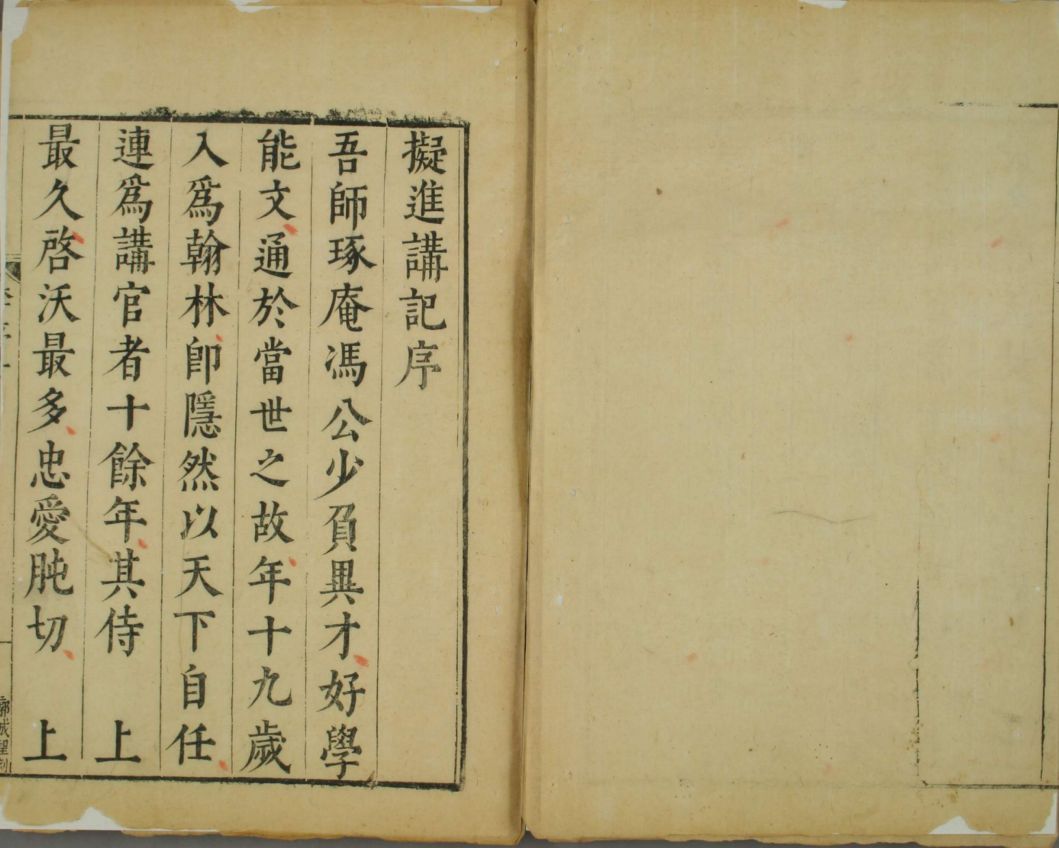 擬進講記序
吾師琢庵馮公少負異才好學
能文通於當世之故年十九歲
入爲翰林卽隱然以天下自任
連爲講官者十餘年其侍　上
最久啓沃最多忠愛肫切　上